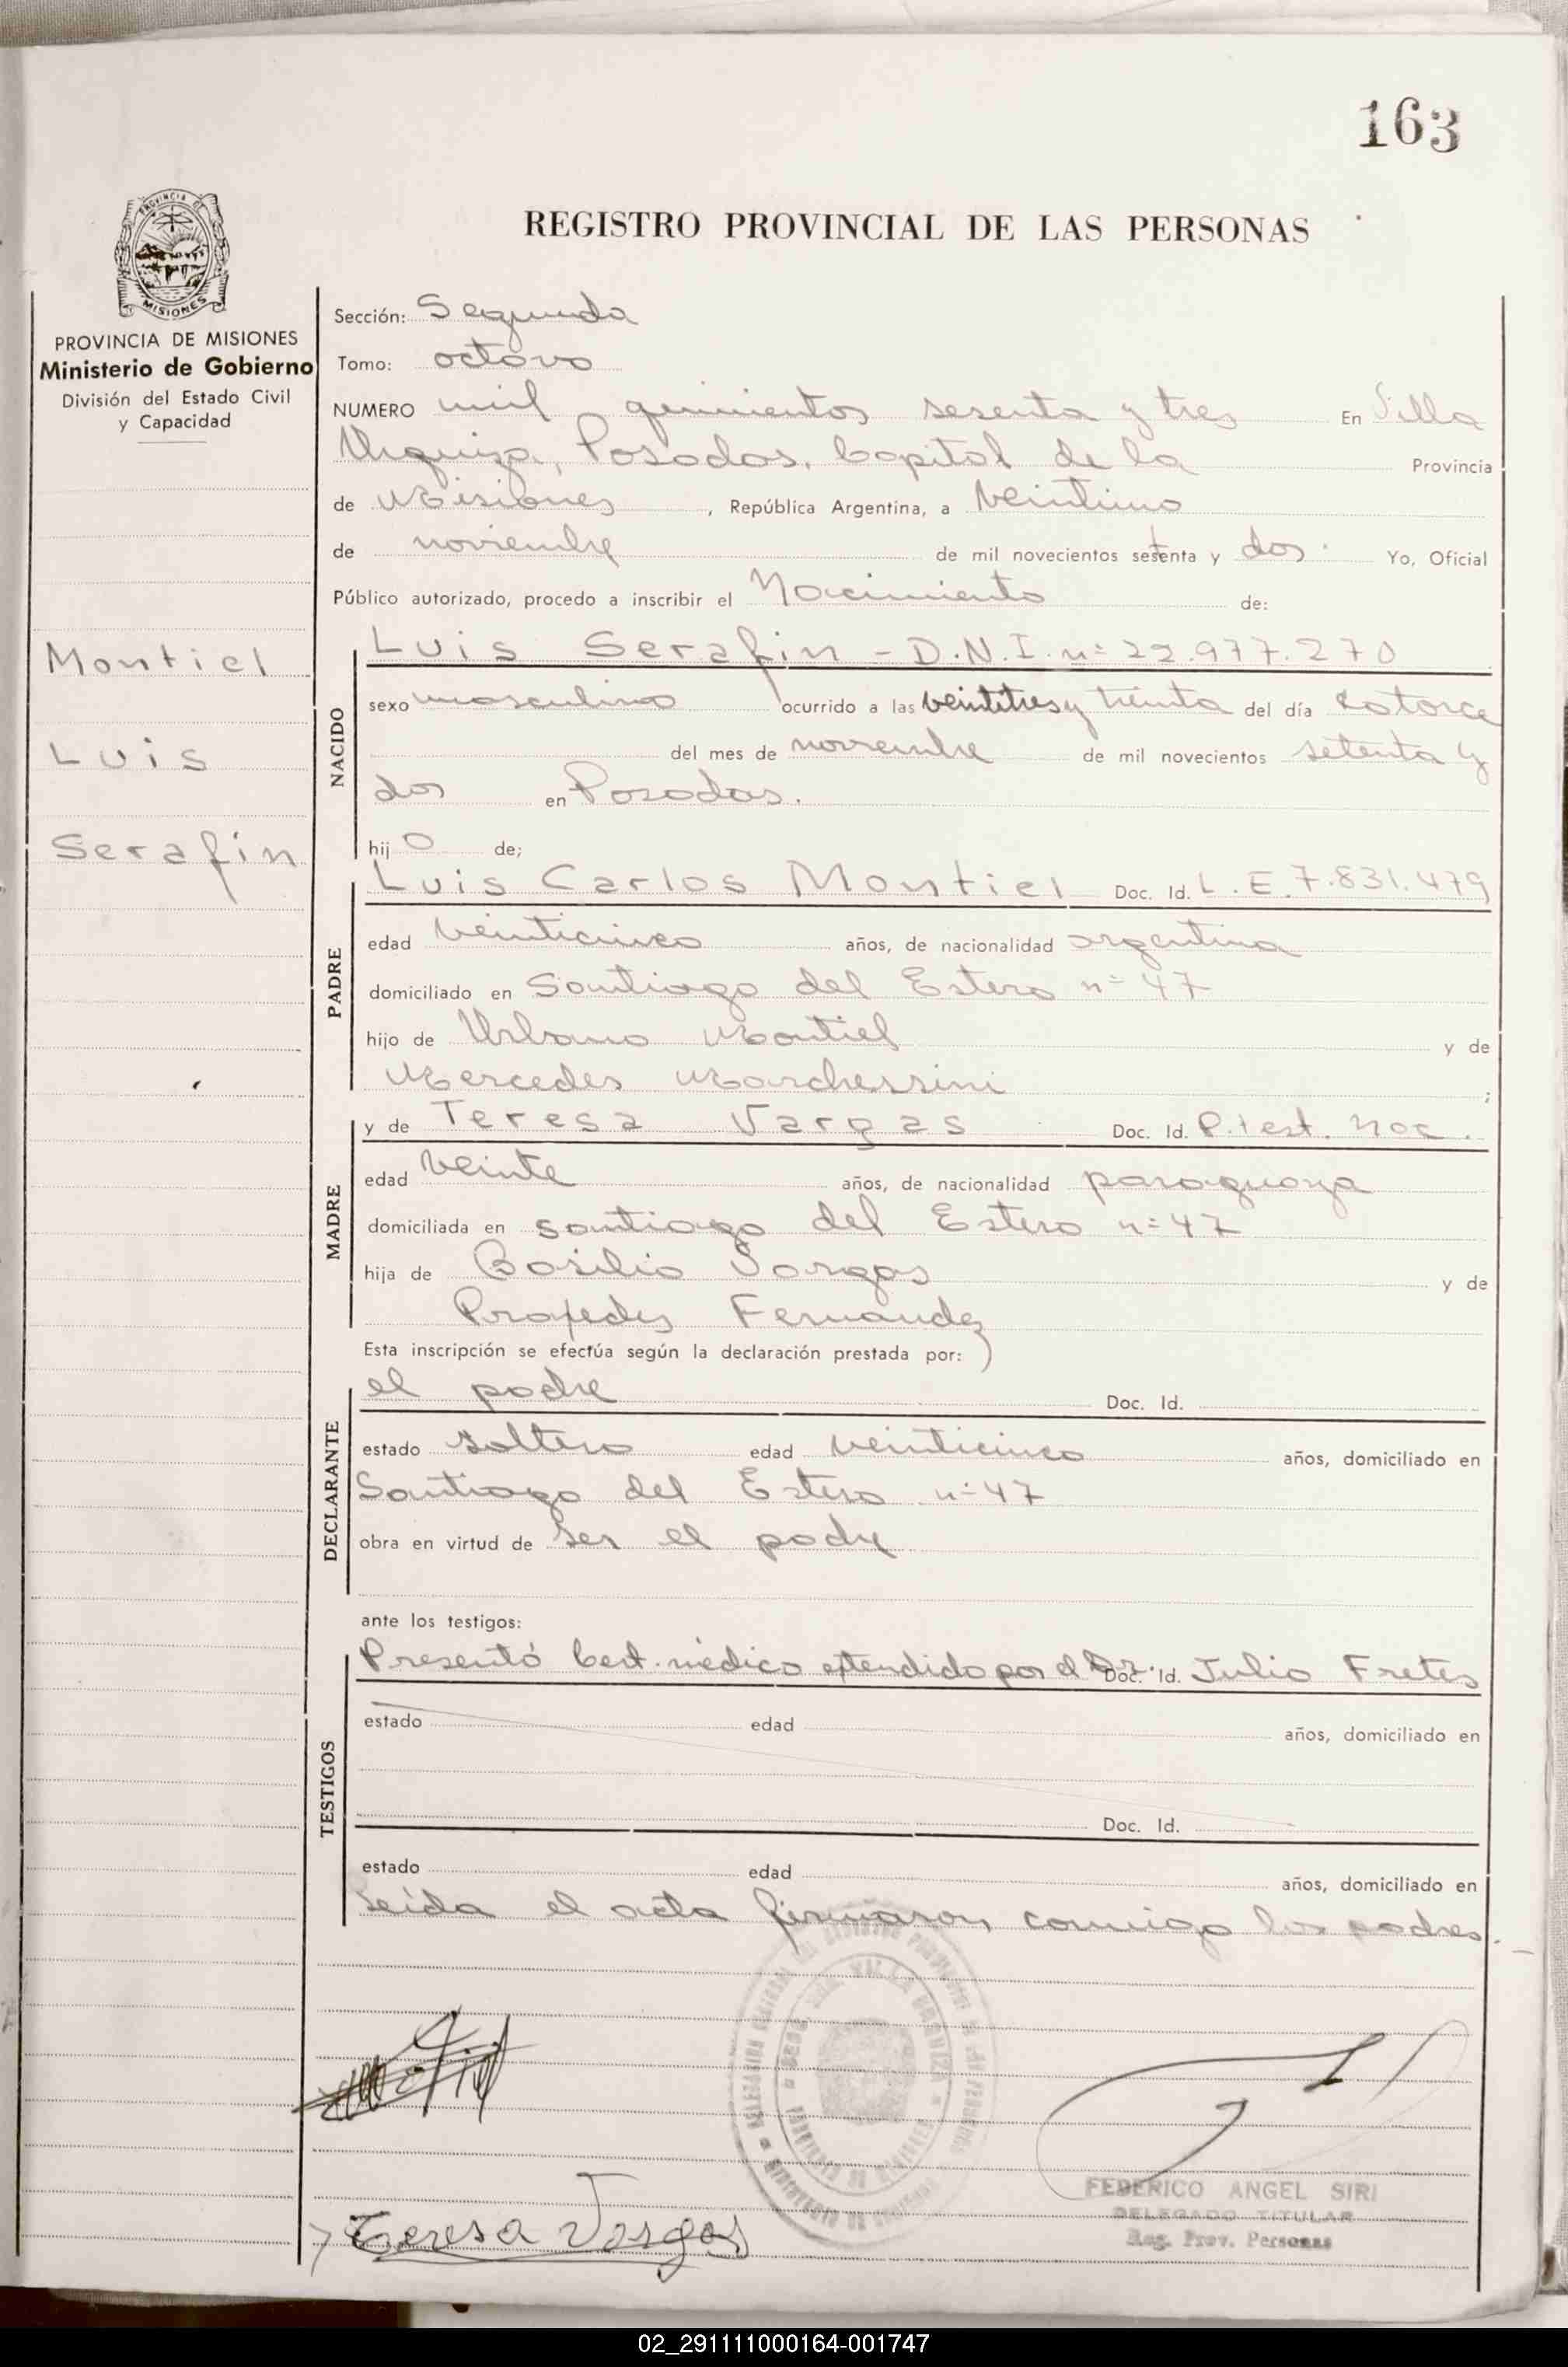 163
REGISTRO PROVINCIAL DE LAS PERSONAS
PROVINCIA DE MISIONES
Ministerio de Gobierno
División del Estado Civil
y Capacidad
Montiel
Luis
Serafín
Sección: Segunda
Tomo: octavo
NUMERO mil quinientos sesenta y tres En Villa
Urquiza, Posadas, Capital de la Provincia
de Misiones, República Argentina, a veintiuno
de noviembre de mil novecientos setenta y dos. Yo, Oficial
Público autorizado, procedo a inscribir el Nacimiento de:
NACIDO
Luis Serafin - D.N.I. nº 22.977.270
sexo masculino ocurrido a las veintitres y treinta del día catorce
del mes de noviembre de mil novecientos setenta y
dos en Posadas.
hijo de;
PADRE
Luis Carlos Montiel Doc. Id. L.E. 7.831.479
edad veinticinco años, de nacionalidad argentina
domiciliado en Santiago del Estero nº 47
hijo de Urbano Montiel y de
Mercedes Marchessini ;
MADRE
y de Teresa Vargas Doc. Id. P. test. Noc.
edad veinte años, de nacionalidad paraguaya
domiciliada en santiago del Estero nº 47
hija de Basilio Vargas y de
Fernandez
Esta inscripción se efectúa según la declaración prestada por:
DECLARANTE
el padre Doc. Id.
estado soltero edad veinticinco años, domiciliado en
Santiago del Estero nº 47
obra en virtud de ser el padre
ante los testigos:
TESTIGOS
Presentó Cert. médico extendido por el Dr. Doc. Id. Julio Fretes
estado edad años, domiciliado en
Doc. Id.
estado edad años, domiciliado en
Leída el acta firmaron conmigo los padres.-
Teresa Vargas
FEDERICO ANGEL SIRI
DELEGADO TITULAR
Reg. Prov. Personas
02_291111000164-001747